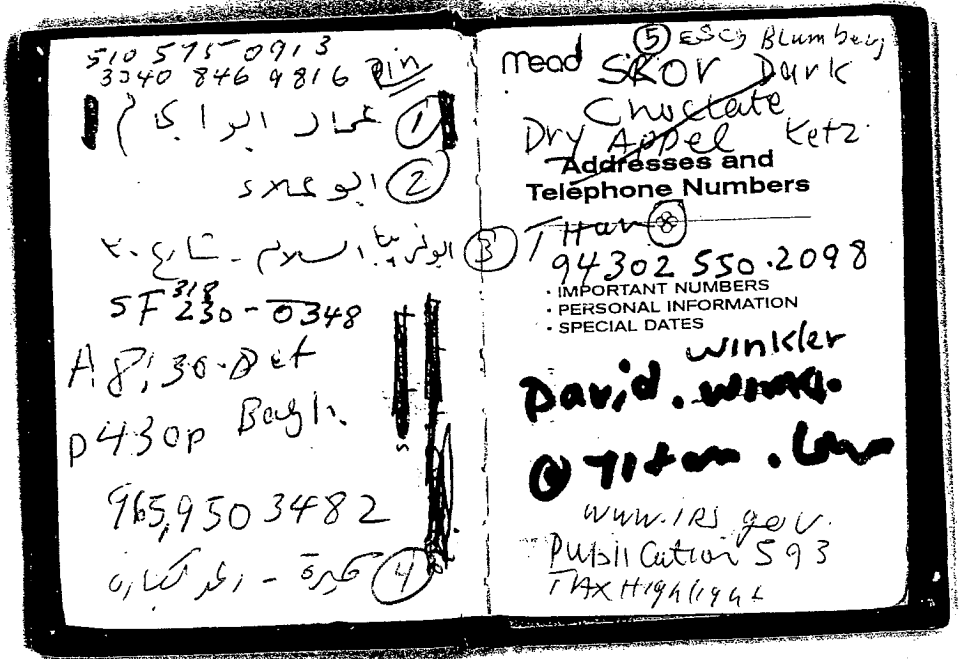 510 575 0913
3340 846 9816 Pin
① عمار ابو احكام
② ابو علاء
③ السلام - شارع ٢٠
SF 318 230-0348
A 8:30. Det
P 430p Bagh.
965,9503482
④ -
⑤ ESCJ Blumberg
mead SKOR Dark
Choctate
Dry Appel Ketz.
Addresses and
Telephone Numbers
THar ⑧
94302 550.2098
• IMPORTANT NUMBERS
• PERSONAL INFORMATION
• SPECIAL DATES
winkler
David.wink.
@Titan.com
www.irs gov.
Publication 593
TAX Highlight